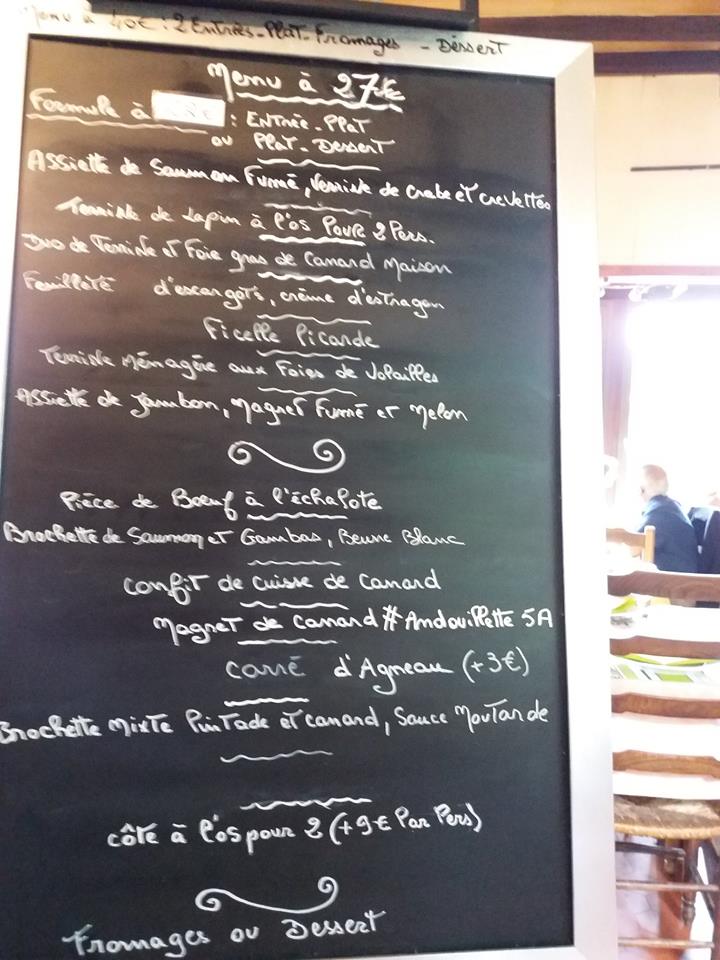 Menu à 40€ : 2 Entrées - Plat - Fromages - Déssert
Menu à 27€
Formule à : Entrée - Plat
ou Plat - Dessert
Assiette de Saumon Fumé, Terrine de Crabe et Crevettes
Terrine de Lapin à l'os Pour 2 Pers.
Duo de Terrine et Foie gras de Canard Maison
Feuilleté d'escargots, crème d'estragon
Ficelle Picarde
Terrine Ménagère aux Foies de Volailles
Assiette de Jambon, Magret Fumé et Melon
Pièce de Bœuf à l'échalote
Brochette de Saumon et Gambas, Beurre Blanc
Confit de Cuisse de Canard
Magret de Canard # Andouillette 5A
Carré d'Agneau (+3€)
Brochette Mixte Pintade et Canard, Sauce Moutarde
côte à l'os pour 2 (+9€ Par Pers)
Fromages ou Dessert